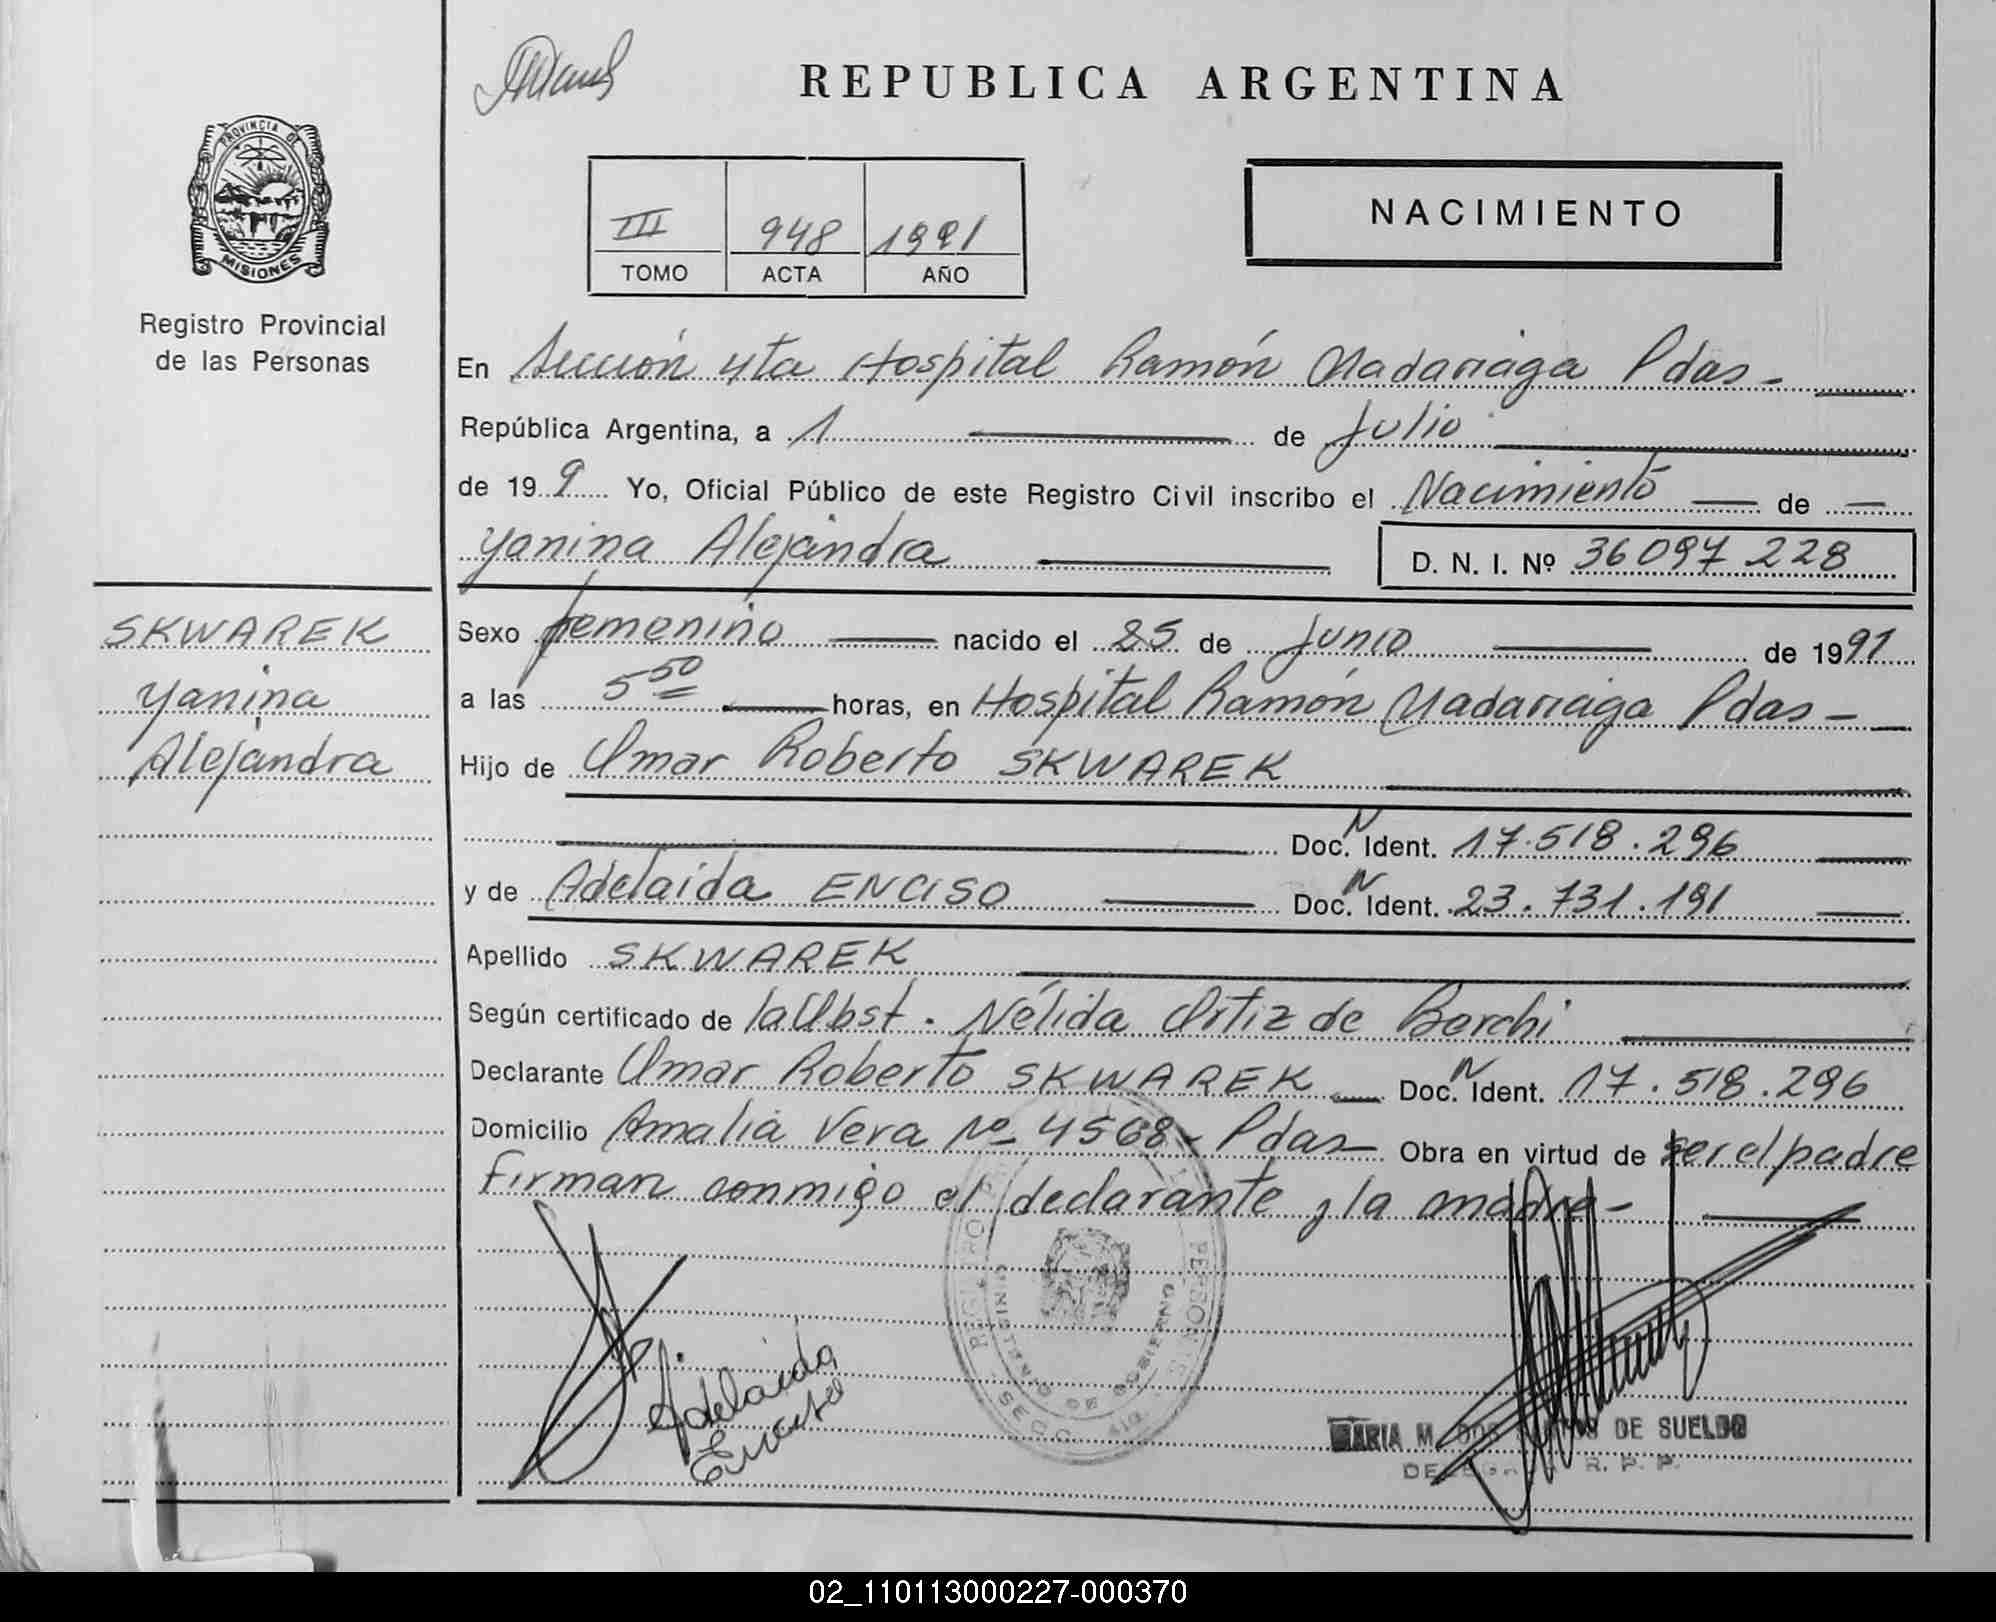 REPUBLICA ARGENTINA
PROVINCIA DE
MISIONES
Registro Provincial
de las Personas
III 948 1991
TOMO ACTA AÑO
NACIMIENTO
En Sección 4ta Hospital Ramón Madariaga Pdas -
República Argentina, a 1 de Julio
de 19 9 Yo, Oficial Público de este Registro Civil inscribo el Nacimiento de
Yanina Alejandra D. N. I. Nº 36 097 228
SKWAREK
Yanina
Alejandra
Sexo femenino nacido el 25 de Junio de 1991
a las 5 50 horas, en Hospital Ramón Madariaga Pdas -
Hijo de Omar Roberto SKWAREK
Doc. N Ident. 17.518.296
y de Adelaida ENCISO Doc. N Ident. 23.731.191
Apellido SKWAREK
Según certificado de la Obst. Nélida Ortiz de Berchi
Declarante Omar Roberto SKWAREK Doc. N Ident. 17.518.296
Domicilio Amalia Vera Nº 4568 - Pdas Obra en virtud de ser el padre
Firman conmigo el declarante y la madre -
Adelaida
Enciso
MINISTERIO DE GOBIERNO
MARIA M. DOS DE SUELDO
R. P. P.
02_110113000227-000370